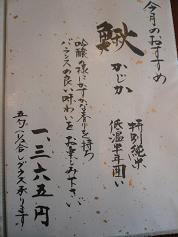 今月のおすすめ
鰍 かじか
特別純米
低温半年囲い
吟醸の様にかすかな香りを持つ
バランスの良い味わいをお楽しみ下さい
一、三六五円
五勺(一/2合)グラス承ります